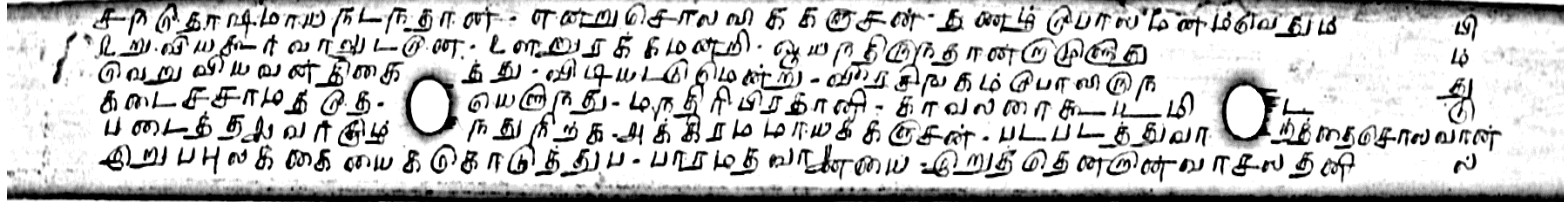 சநதோஷமாயநடநதான - என்றுசொலலிக கஞசன் - தணழ் போல மனமவெதும பி
உறுவியகூர்வாளுடனே - உளறுரககமன்றி - ஓயநதிருநதானமுழித்து ம
வெறுவியவன் திகை த்து - விடியடடுமென்று - வீரசிஙகம போலிருந து
கடைசசாமதது - யெழுநது - மநதிரிபிரதானி - காவலரைகூடடமி ட டு
படைத்தஅவர்கிழ் நதுநிறக - அககிரமமாயககஞசன் - படபடத்துவா ர்த்தைசொலவான்
இறுபபுலககையைககொடுத்துப - பாரமதயானையை - இறுத்தென்முனவாசலதனி ல்